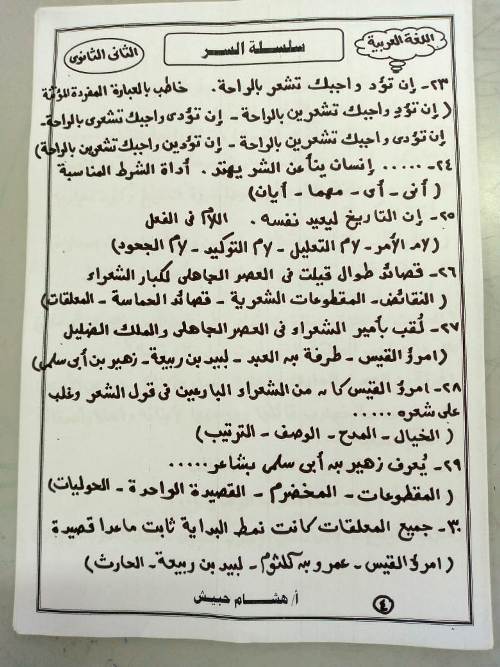 اللغة العربية
سلسلة السر
الثانى الثانوى
٢٣- إن تؤد واجبك تشعر بالراحة. خاطب بالعبارة المفردة المؤنثة
( إن تؤدِ واجبك تشعرين بالراحة - إن تؤدى واجبك تشعرى بالراحة-
إن تؤدى واجبك تشعرين بالراحة - إن تؤدين واجبك تشعرين بالراحة)
٢٤- ..... إنسان ينأ عن الشر يهتد. أداة الشرط المناسبة
( أنى - أى - مهما - أيان)
٢٥- إن التاريخ ليعيد نفسه. اللام فى الفعل
(لام الأمر - لام التعليل - لام التوكيد - لام الجحود)
٢٦- قصائد طوال قيلت فى العصر الجاهلى لكبار الشعراء
( النقائض - المقطوعات الشعرية - قصائد الحماسة - المعلقات)
٢٧- لُقب بأمير الشعراء فى العصر الجاهلى والملك الضليل
(امرؤ القيس - طرفة بن العبد - لبيد بن ربيعة - زهير بن أبى سلمى)
٢٨- امرؤ القيس كان من الشعراء البارعين فى قول الشعر وغلب
على شعره .....
( الخيال - المدح - الوصف - الترتيب)
٢٩- يُعرف زهير بن أبى سلمى بشاعر.....
( المقطوعات - المخضرم - القصيدة الواحدة - الحوليات)
٣٠- جميع المعلقات كانت نمط البداية ثابت ماعدا قصيدة
( امرؤ القيس - عمرو بن كلثوم - لبيد بن ربيعة - الحارث)
أ/ هشام حبيش
٤